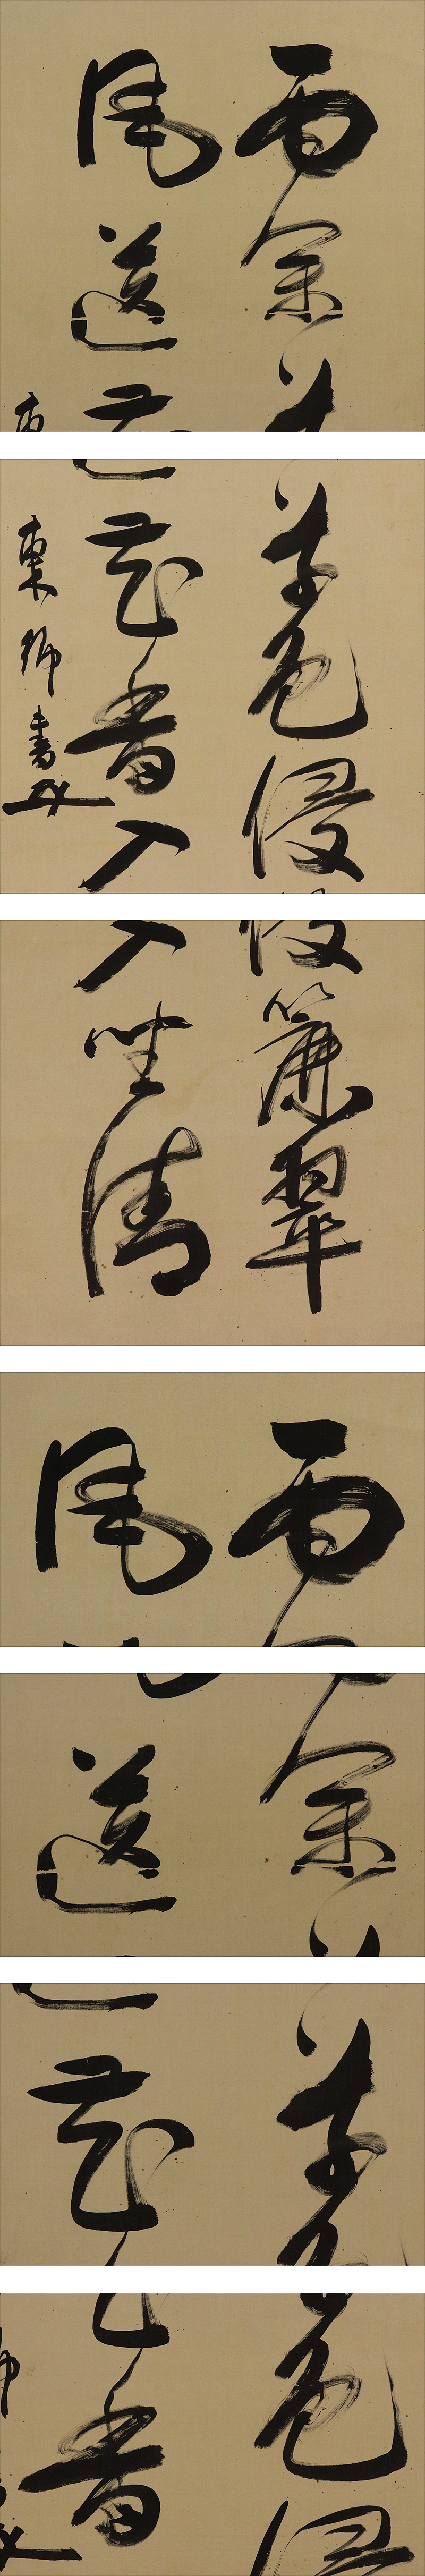 雨余草色侵簾翠
風送花香入坐清
書